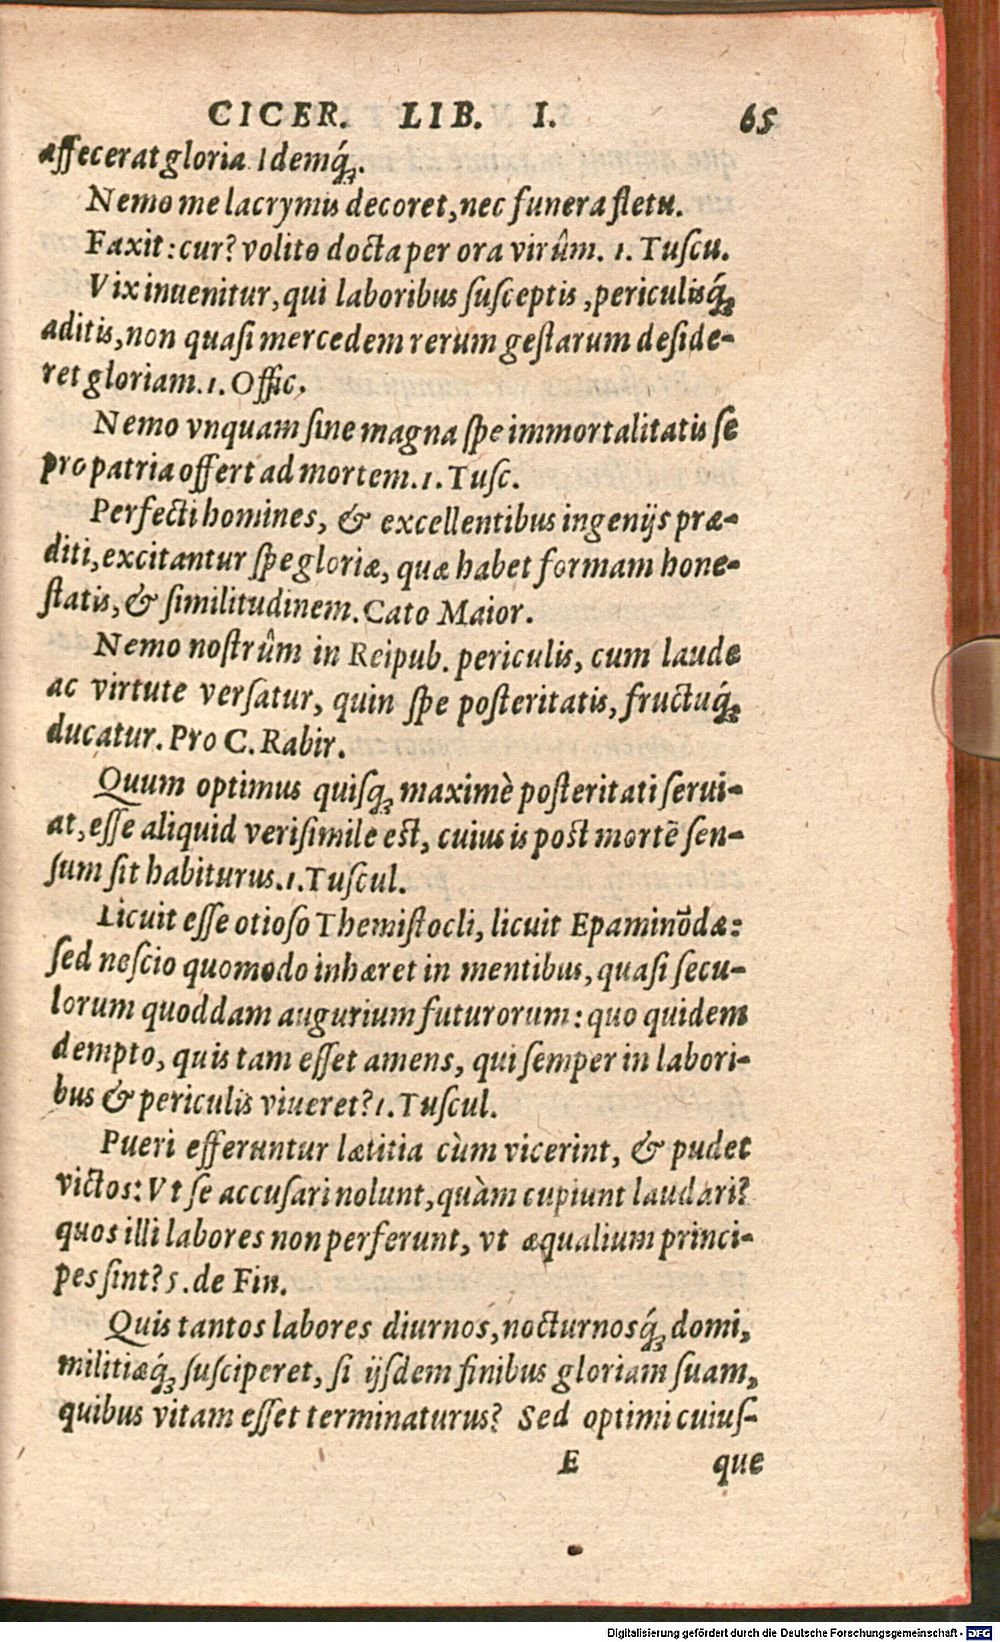 CICER. LIB. I. 65
affecerat gloria. Idemq́;.
Nemo me lacrymis decoret, nec funera fletu.
Faxit: cur? volito docta per ora virûm. 1. Tuscu.
Vix inuenitur, qui laboribus susceptis, periculisq́;
aditis, non quasi mercedem rerum gestarum deside-
ret gloriam. 1. Offic.
Nemo vnquam sine magna spe immortalitatis se
pro patria offert ad mortem. 1. Tusc.
Perfecti homines, & excellentibus ingenijs præ-
diti, excitantur spe gloriæ, quæ habet formam hone-
statis, & similitudinem. Cato Maior.
Nemo nostrûm in Reipub. periculis, cum laude
ac virtute versatur, quin spe posteritatis, fructuq́;
ducatur. Pro C. Rabir.
Quum optimus quisq; maximè posteritati serui-
at, esse aliquid verisimile est, cuius is post mortē sen-
sum sit habiturus. 1. Tuscul.
Licuit esse otioso Themistocli, licuit Epaminōdæ:
sed nescio quomodo inhæret in mentibus, quasi secu-
lorum quoddam augurium futurorum: quo quidem
dempto, quis tam esset amens, qui semper in labori-
bus & periculis viueret? 1. Tuscul.
Pueri efferuntur lætitia cùm vicerint, & pudet
victos: Vt se accusari nolunt, quàm cupiunt laudari?
quos illi labores non perferunt, vt æqualium princi-
pes sint? 5. de Fin.
Quis tantos labores diurnos, nocturnosq́; domi,
militiæq́; susciperet, si ijsdem finibus gloriam suam,
quibus vitam esset terminaturus? Sed optimi cuius-
E que
Digitalisierung gefördert durch die Deutsche Forschungsgemeinschaft - DFG